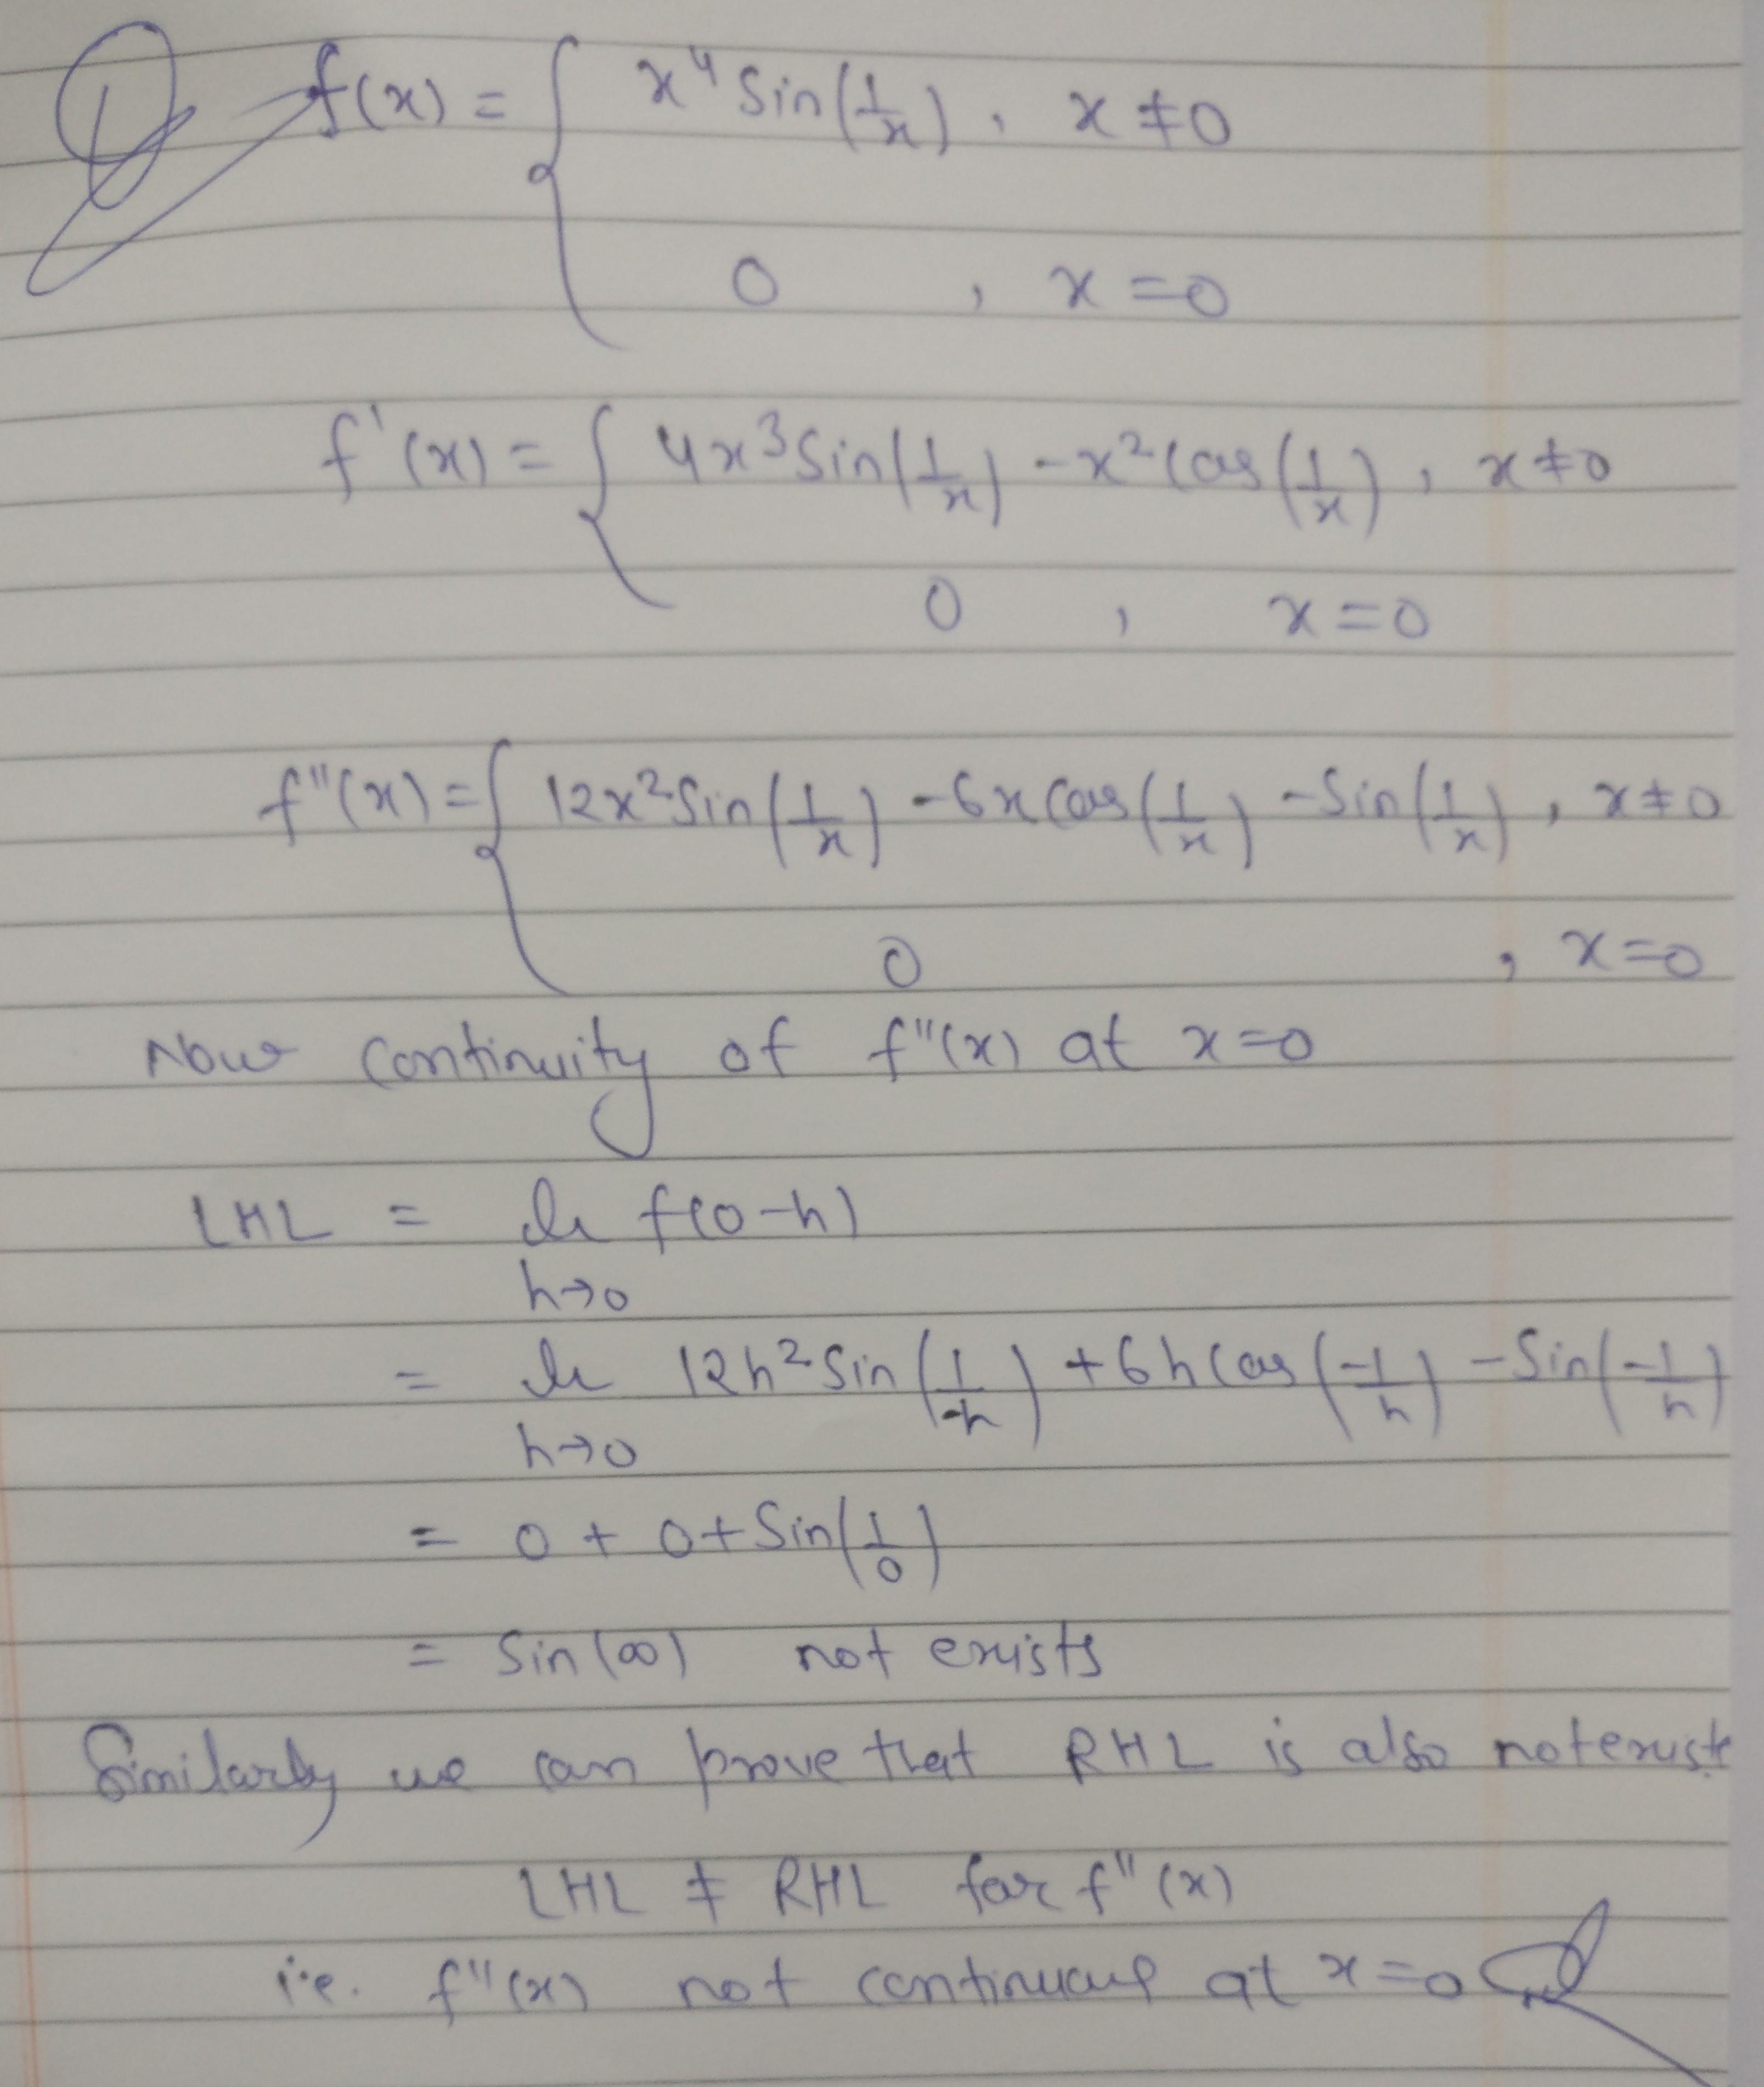 ① f(x) = { x⁴ Sin(1/x), x ≠ 0
0, x = 0
f'(x) = { 4x³ Sin(1/x) - x² Cos(1/x), x ≠ 0
0, x = 0
f''(x) = { 12x² Sin(1/x) - 6x Cos(1/x) - Sin(1/x), x ≠ 0
0, x = 0
Now continuity of f''(x) at x = 0
LHL = lt f(0-h)
h→0
= lt 12h² Sin(1/-h) + 6h Cos(-1/h) - Sin(-1/h)
h→0
= 0 + 0 + Sin(1/0)
= Sin(∞) not exists
Similarly we can prove that RHL is also not exist
LHL ≠ RHL for f''(x)
i.e. f''(x) not continuous at x = 0